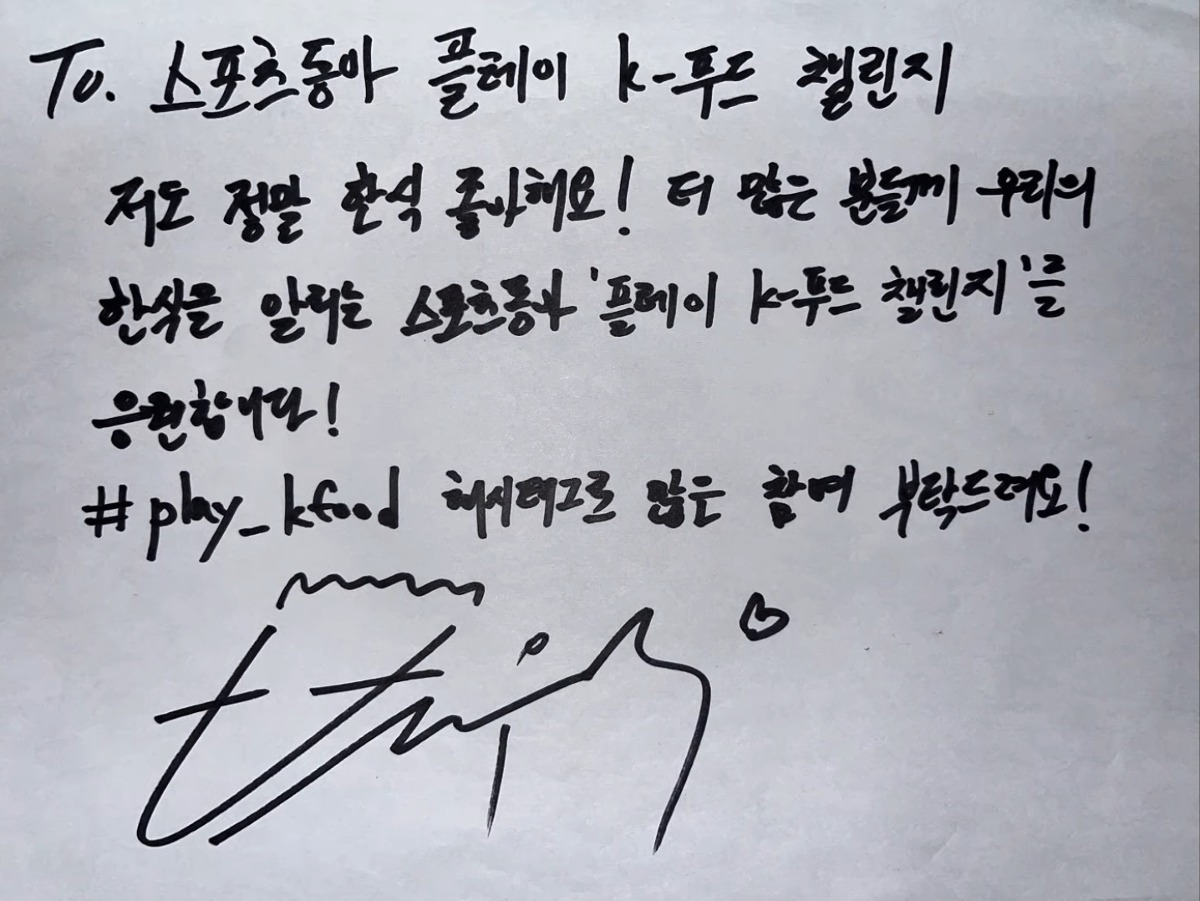 To. 스포츠동아 플레이 k-푸드 챌린지
저도 정말 한식 좋아해요! 더 많은 분들께 우리의
한식을 알리는 스포츠동아 '플레이 k-푸드 챌린지'를
응원합니다!
#play_kfood 해시태그로 많은 참여 부탁드려요!